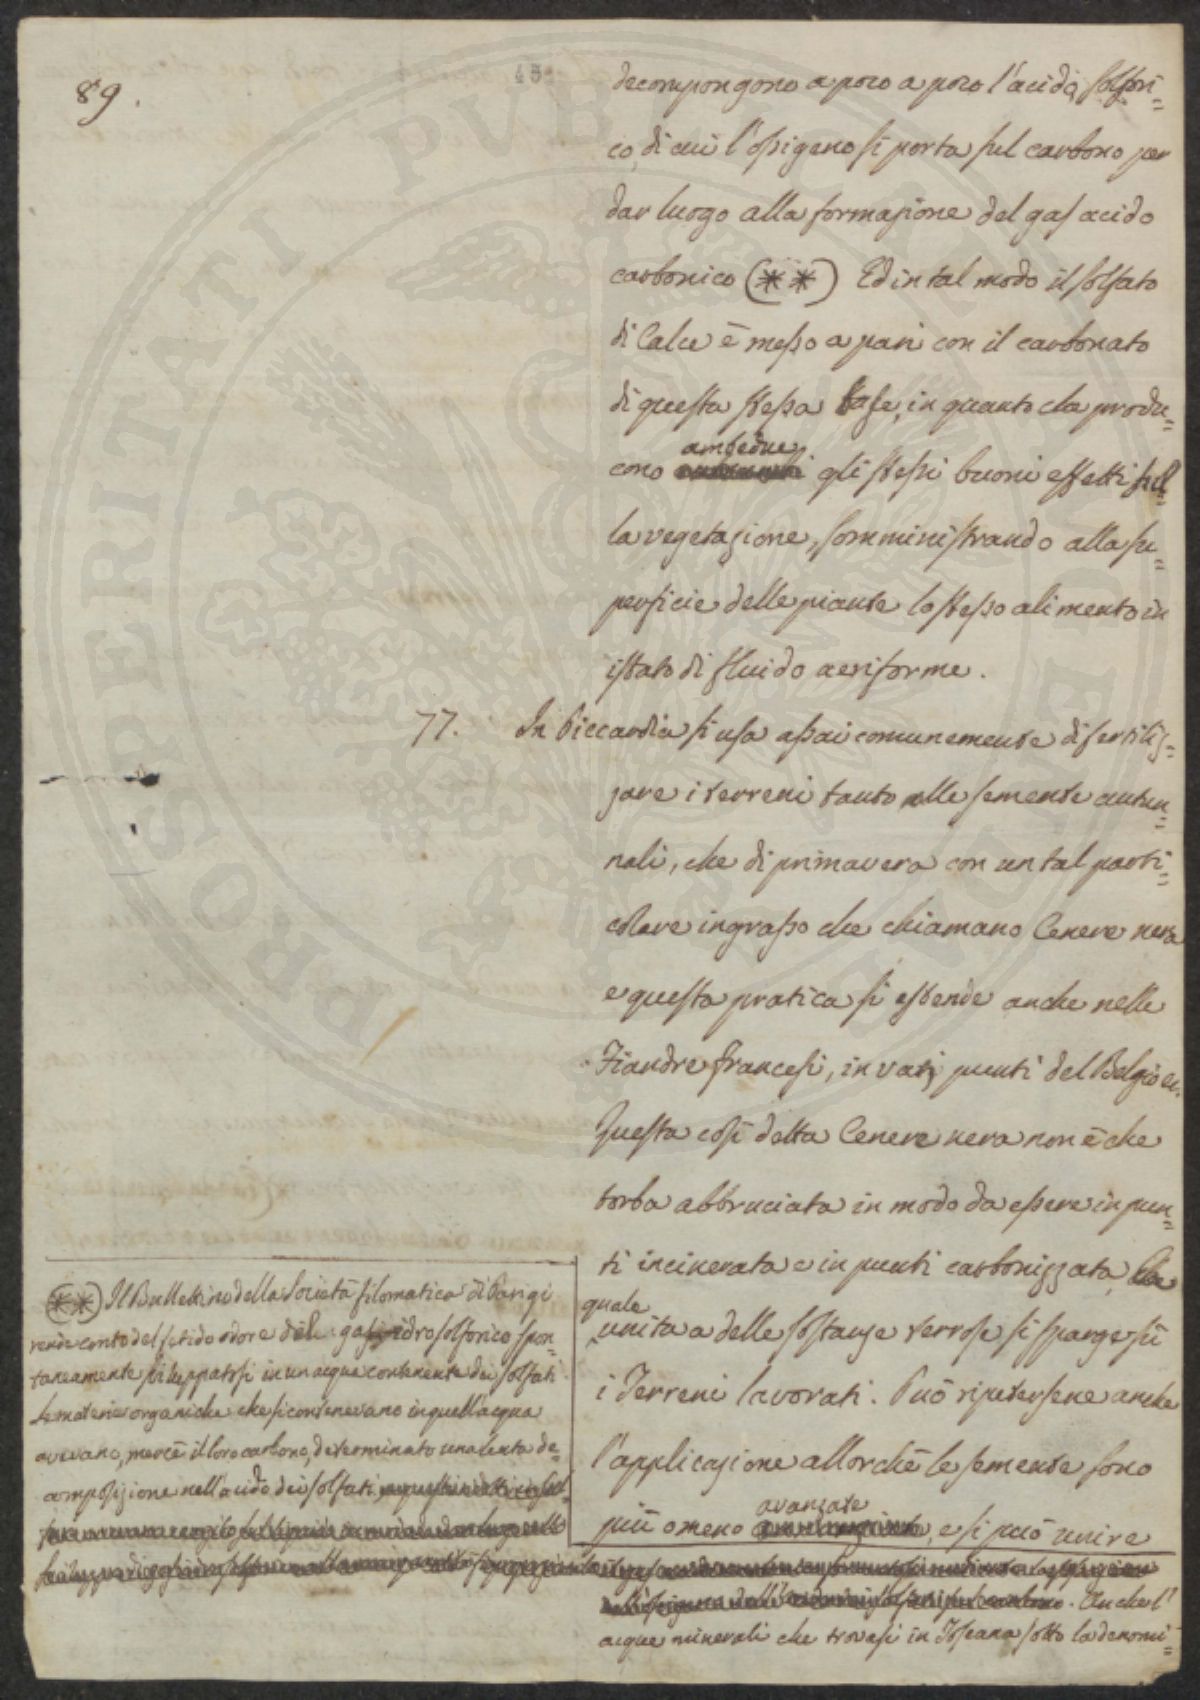 89.
decompongono a poco a poco l'acido solfori=
co, di cui l'ossigeno si porta sul carbono per
dar luogo alla formazione del gas acido
carbonico (**) Ed in tal modo il solfato
di Calce è messo a pari con il carbonato
di questa stessa base, in quanto che produ=
cono ambedue gli stessi buoni effetti sul=
la vegetazione, somministrando alla su=
perficie delle piante lo stesso alimento in
istato di fluido aeriforme.
77. In Piccardia si usa assai comunemente di fertiliz=
zare i terreni tanto alle semente autun=
nali, che di primavera con un tal parti=
colare ingrasso che chiamano Cenere nera
e questa pratica si estende anche nelle
Fiandre francesi, in varj punti del Belgio ec.
Questa così detta Cenere nera non è che
torba abbruciata in modo da essere in pun=
ti incinerata e in punti carbonizzata, la
quale
unita a delle sostanze terrose si sparge sù
i Terreni lavorati. Può ripetersene anche
l'applicazione allorchè le semente sono
più o meno avanzate, e si può unire
(**) Il Bullettino della Società filomatica di Parigi
rende conto del fetido odore del gas idrosolforico spon=
taneamente sviluppatosi in un acqua contenente dei solfati.
Le materie organiche che si contenevano in quell'acqua
avevano, mercè il loro carbono, determinato una lenta de=
composizione nell'acido dei solfati,
Anche l'
acque minerali che trovasi in Toscana sotto la denomi=